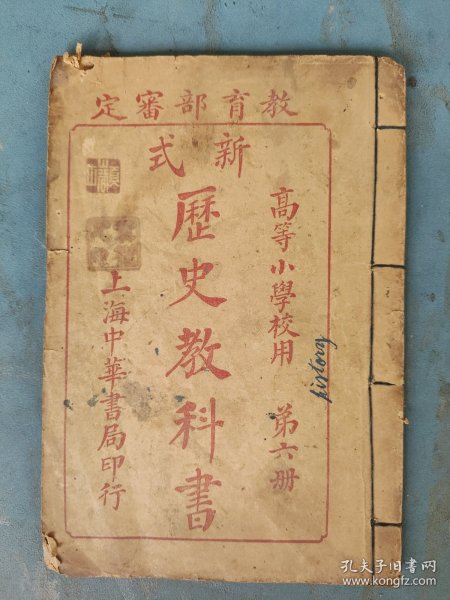 教育部審定
新式
高等小學校用 第六册
歷史教科書
上海中華書局印行
history
孔夫子旧书网
www.kongfz.com